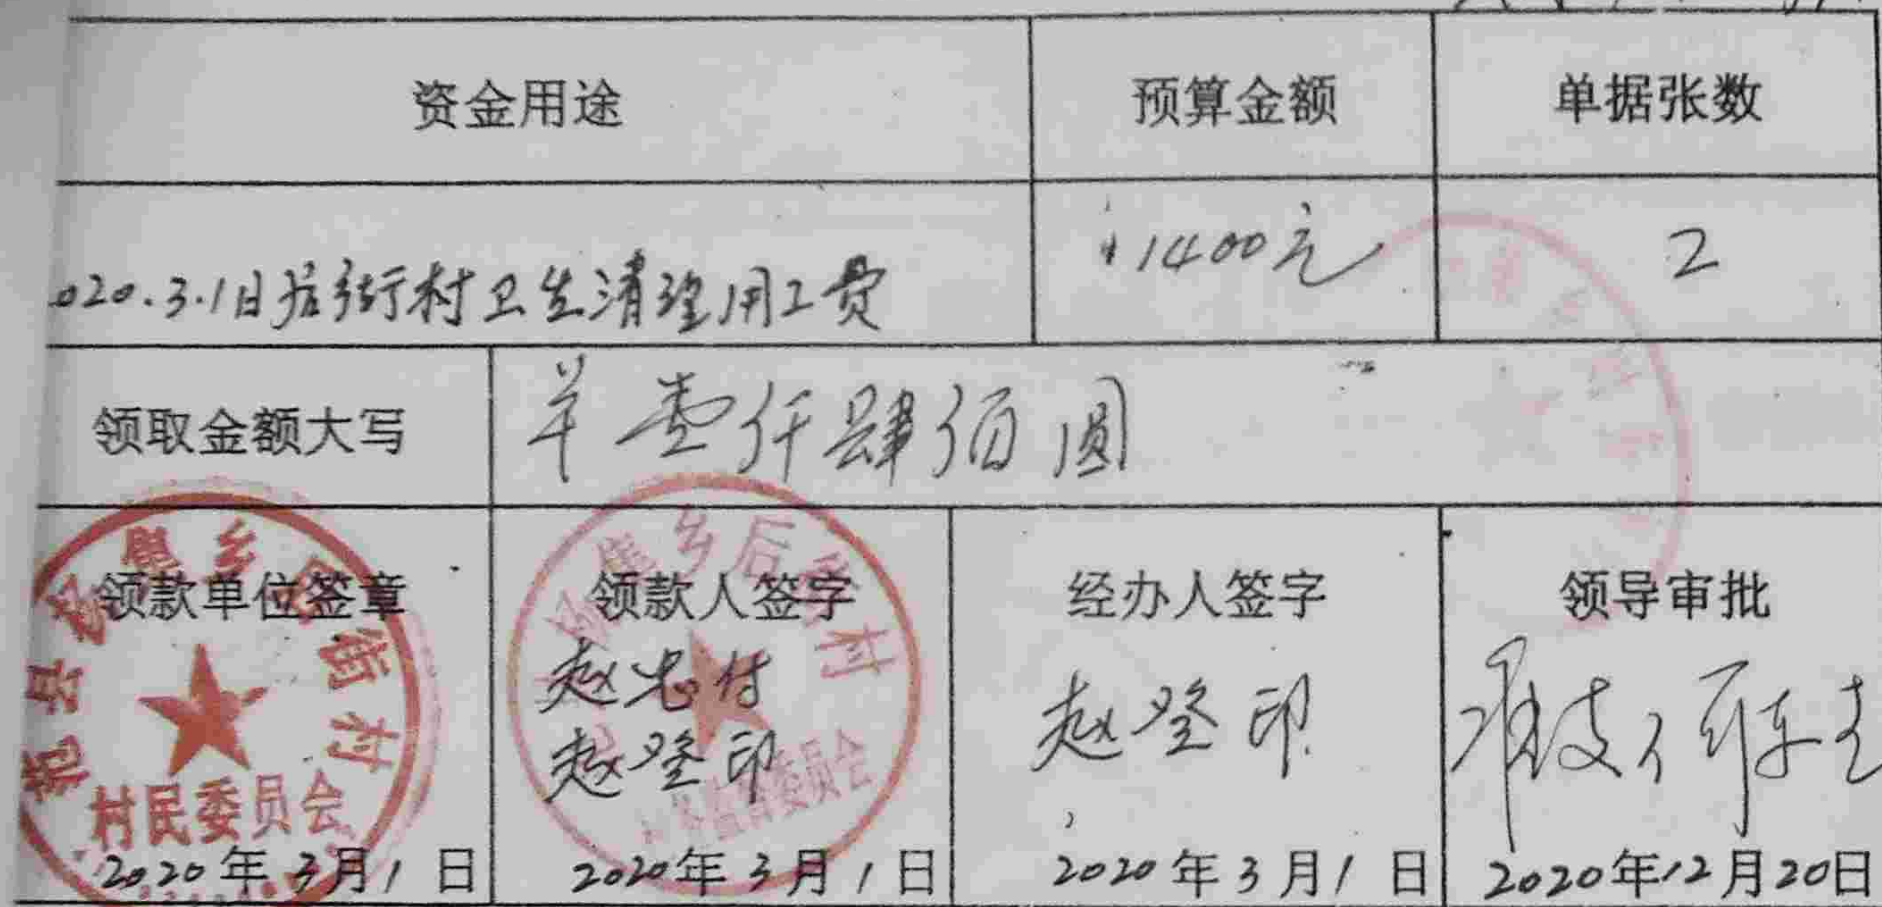 资金用途 预算金额 单据张数
020.3.1日后街村卫生清理用工费 ¥1400元 2
领取金额大写 羊壹仟肆佰圆
领款单位签章 领款人签字 经办人签字 领导审批
乡后街村
村民委员会
乡后街村
监督委员会
赵忠付
赵登印 赵登印
2020年3月1日 2020年3月1日 2020年3月1日 2020年12月20日